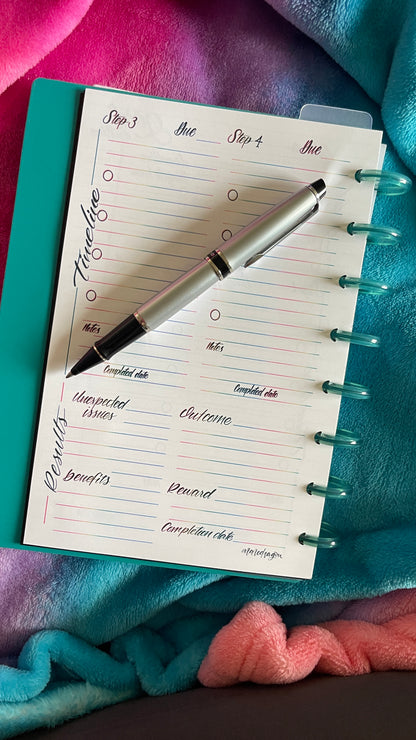 Step 3 Due Step 4 Due
Timeline
Notes
Notes
Completed date
Completed date
Results
Unexpected
issues
Outcome
benefits
Reward
Completion date